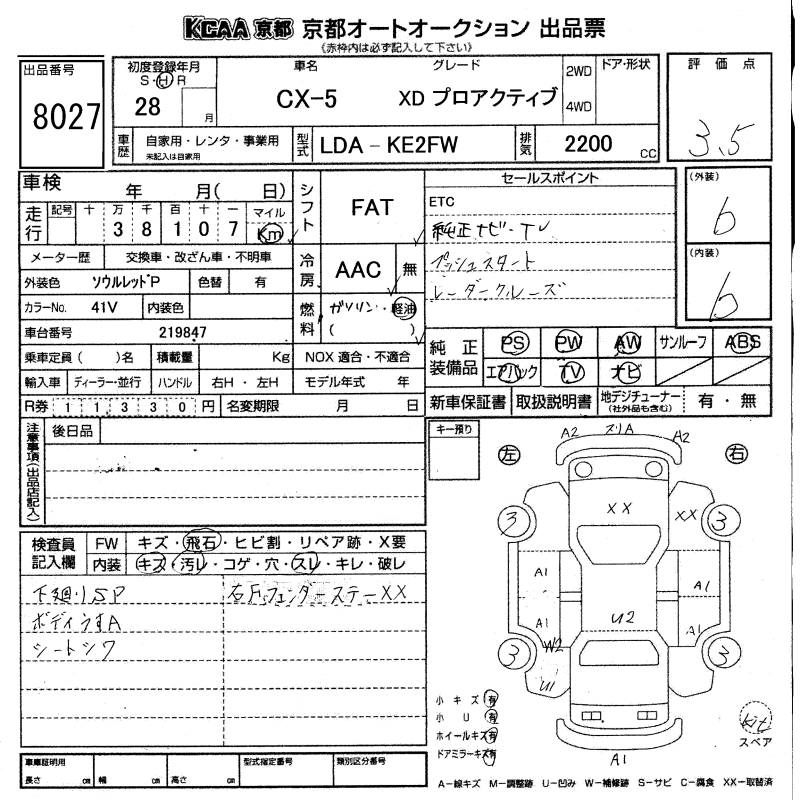 KCAA 京都 京都オートオークション 出品票
《赤枠内は必ず記入して下さい》
出品番号
8027
初度登録年月
S・H・R
28 月
車名
CX-5
グレード
XD プロアクティブ
2WD
4WD
ドア・形状
評価点
3.5
車歴
自家用・レンタ・事業用
未記入は自家用
型式
LDA - KE2FW
排気
2200 cc
車検 年 月( 日)
走行
記号 十 万 千 百 十 一 マイル
3 8 1 0 7 Km
メーター歴 交換車・改ざん車・不明車
外装色 ソウルレッドP 色替 有
カラーNo. 41V 内装色
車台番号 219847
乗車定員( )名 積載量 Kg
輸入車 ディーラー・並行 ハンドル 右H・左H
R券 1 1 3 3 0 円 名変期限 月 日
シフト FAT
冷房 AAC 無
燃料 ガソリン・軽油
( )
NOX 適合・不適合
モデル年式 年
セールスポイント
ETC
純正ナビ-TV
プッシュスタート
レーダークルーズ
(外装)
6
(内装)
6
純正装備品
PS PW AW サンルーフ ABS
エアバック TV ナビ
新車保証書 取扱説明書 地デジチューナー(社外品も含む) 有・無
注意事項(出品店記入)
後日品
キー預り
左
右
A2 スリA A2
3 XX XX 3
A1 A1
A1 U2 A1
3 W2 3
U1
A1
検査員記入欄
FW キズ・飛石・ヒビ割・リペア跡・X要
内装 キズ・汚レ・コゲ・穴・スレ・キレ・破レ
下廻りSP
右Fフェンダーステー XX
ボディうすA
シートシワ
小キズ 有
小U 有
ホイールキズ 有
ドアミラーキズ 有
kit
スペア
車庫証明用
長さ cm 幅 cm 高さ cm
型式指定番号
類別区分番号
A-線キズ M-調整跡 U-凹み W-補修跡 S-サビ C-腐食 XX-取替済